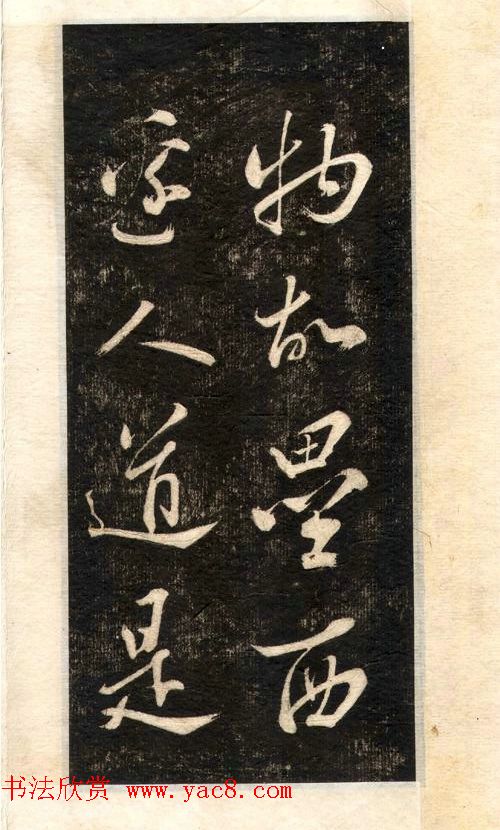 物故壘西
邊人道是
书法欣赏 www.yac8.com